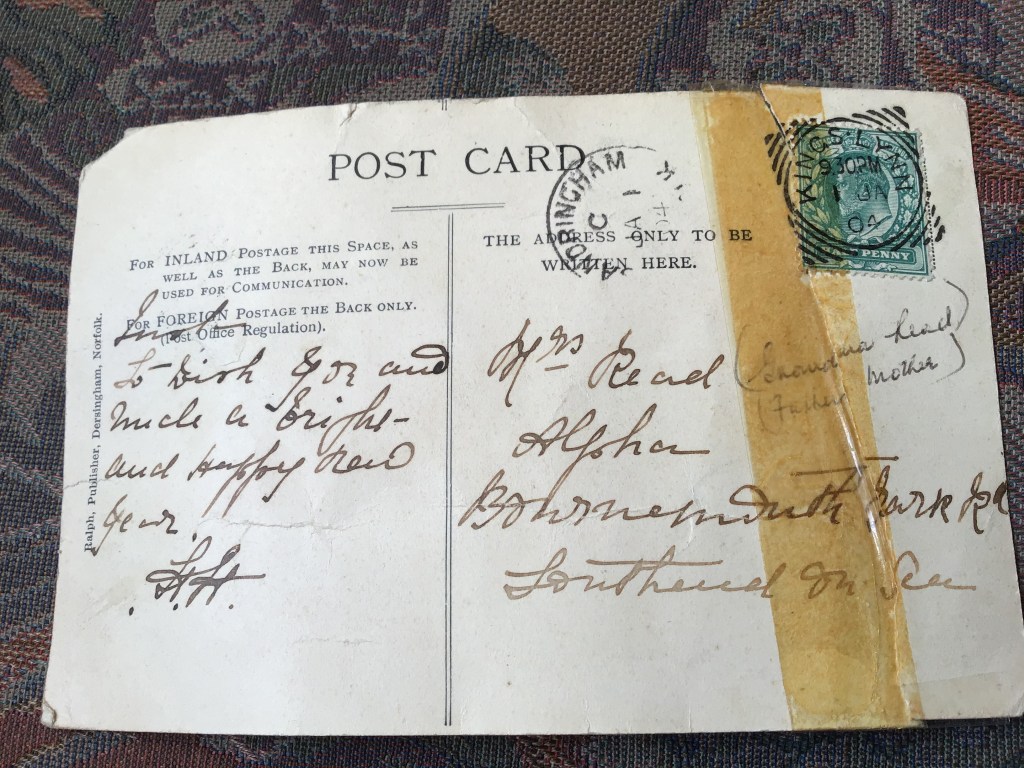 POST CARD
FOR INLAND POSTAGE THIS SPACE, AS
WELL AS THE BACK, MAY NOW BE
USED FOR COMMUNICATION.
FOR FOREIGN POSTAGE THE BACK ONLY.
(Post Office Regulation).
Ralph, Publisher, Dersingham, Norfolk.
To Wish You and
Uncle a Bright
and Happy New
Year
H.H.
THE ADDRESS ONLY TO BE
WRITTEN HERE.
ANDRINGHAM
C
JA 1
04
KING'S LYNN
9 30PM
1 JA
04
PENNY
Mrs Read
Alpha
Bournemouth Park Rd
Southend on Sea
(Grandma Read
(Fathers Mother)